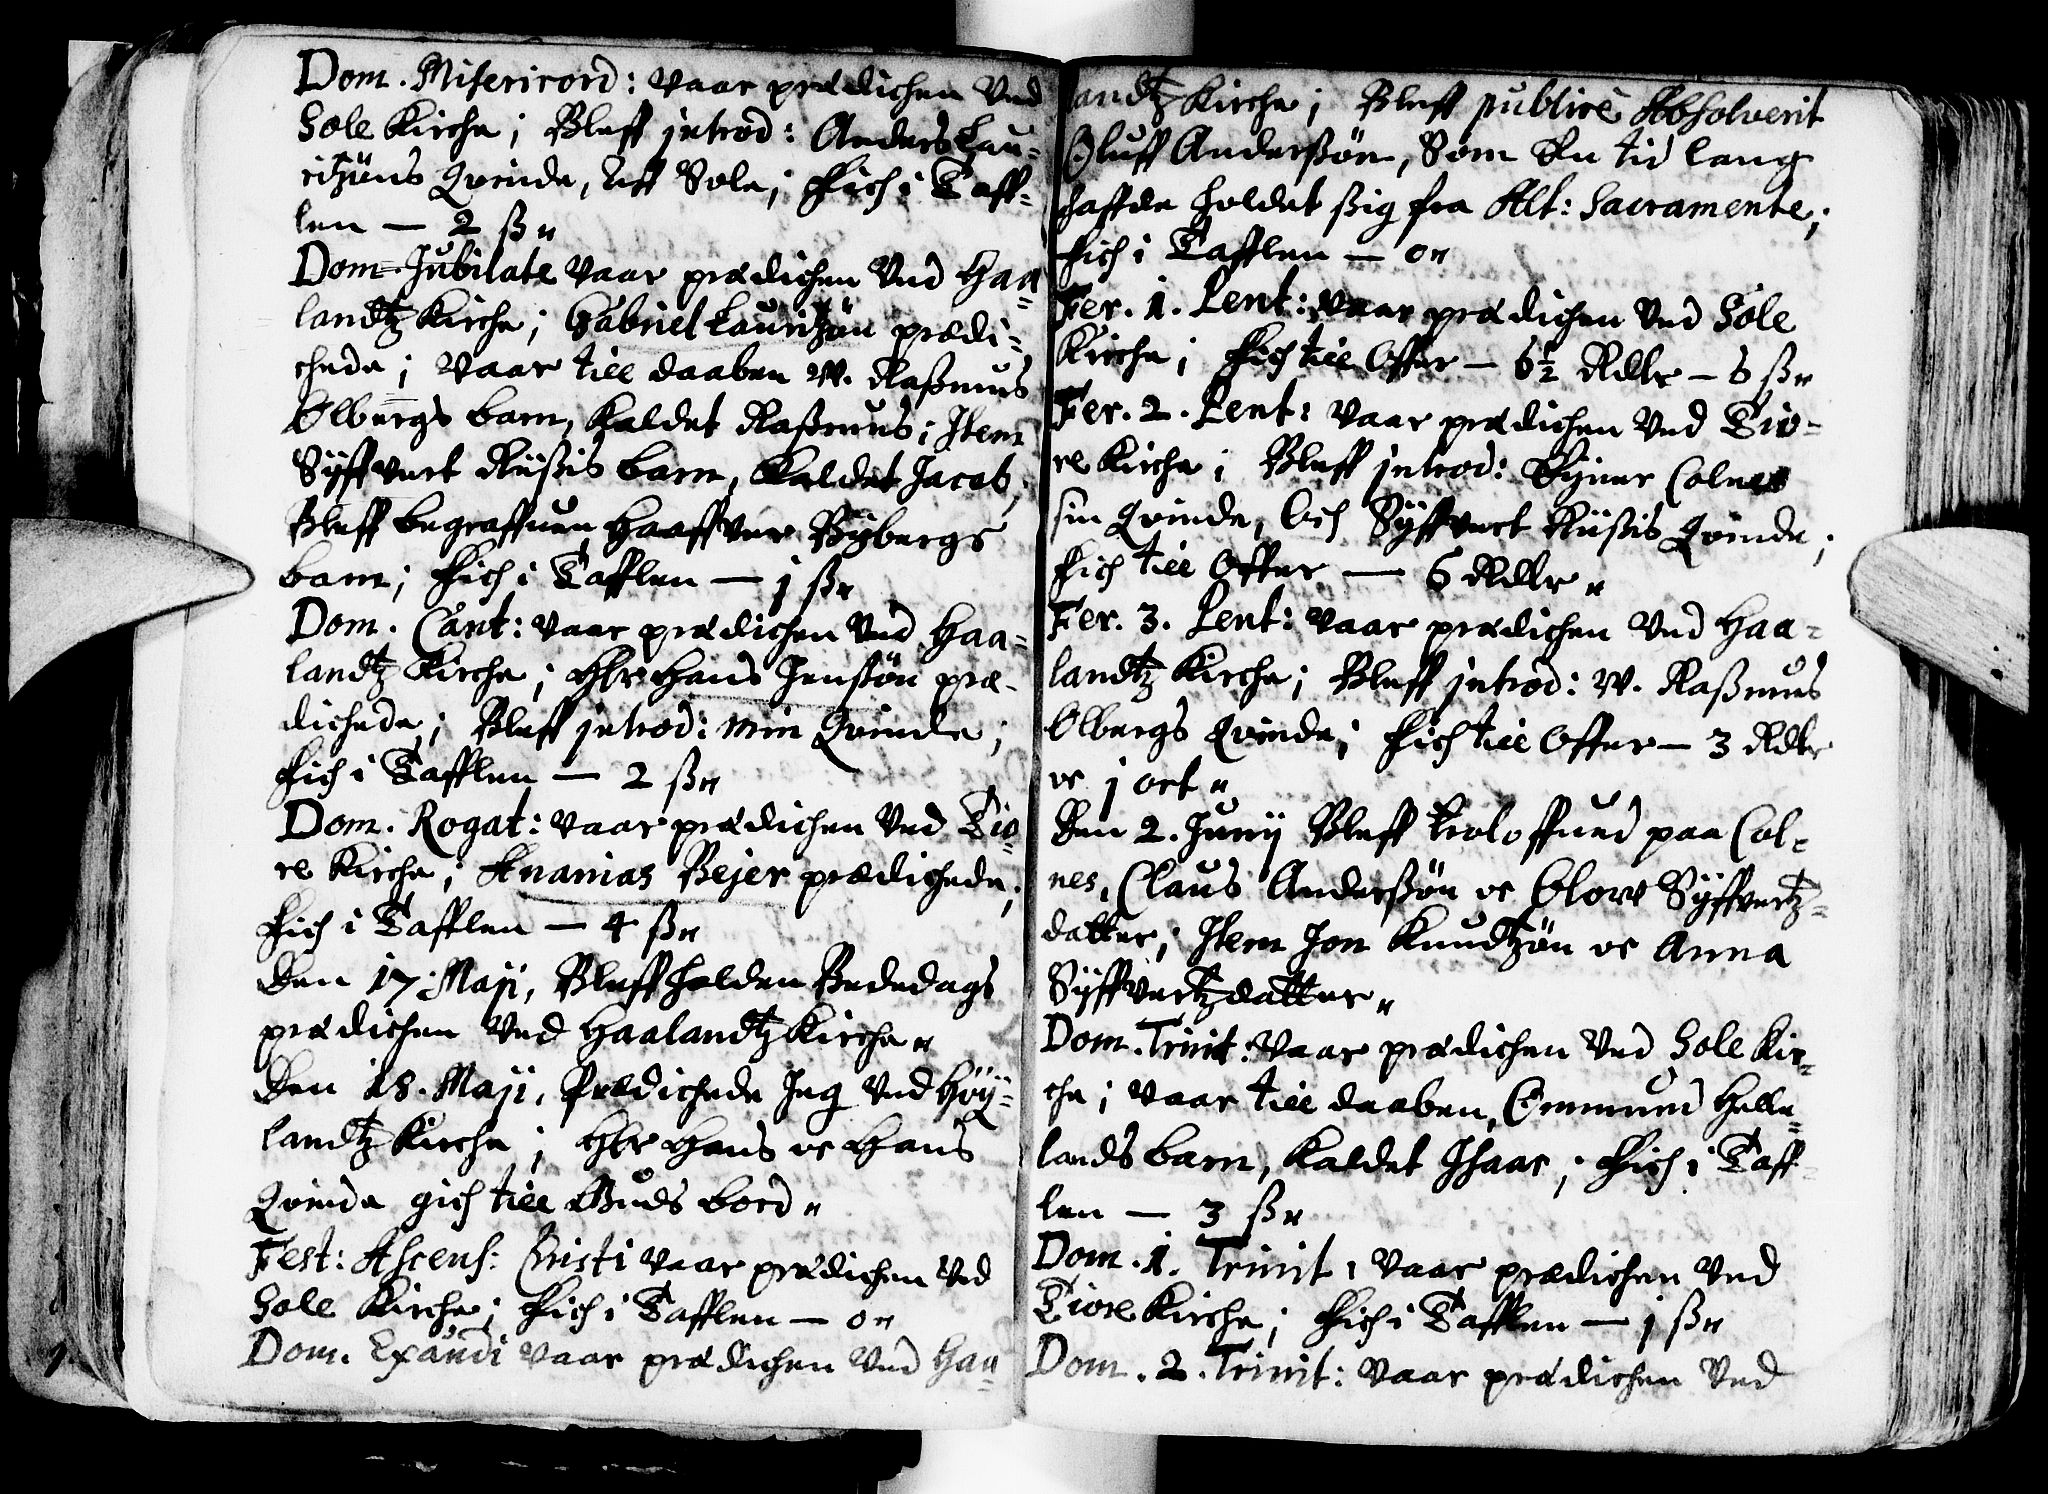 Dom. Misericord: vaar prædichen ved
Sole Kirche; Bleff introd: Anders Lau-
ritzöns Qvinde, aff Sole; Fich i Taff-
len — 2 ß
Dom. Jubilate vaar prædichen ved Haa-
landtz Kirche; Gabriel Lauritzön prædi-
chede; vaar till daaben W. Raßmus
Olbergs barn, kaldet Raßmus; Item
Syffvert Riißis barn, kaldet Jacob,
Bleff begraffven Haaffver Rybergs
barn; Fich i Tafflen — j ß
Dom. Cant: vaar prædichen ved Haa-
landtz Kirche; Hr Hans Jenßön præ-
dichede; Bleff introd: min Qvinde;
Fich i Tafflen — 2 ß
Dom. Rogat: vaar prædichen ved Tio-
re Kirche; Ananias Bejer prædichede;
Fich i Tafflen — 4 ß
Den 17 Maji, Bleff holden Bededags
prædichen ved Haalandtz Kirche
Den 18. Maji, Prædichede Jeg ved Höy-
landtz Kirche; Hr Hans oc Hans
Qvinde gich till Guds bord
Fest: Ascens: Christi vaar prædichen ved
Sole Kirche; Fich i Tafflen — 0
Dom. Exaudi vaar prædichen ved Haa-
landtz Kirche; Bleff publicè Absolverit
Oluff Anderßön, Som En tid lang
haffde holdet ßig fra Alt: Sacramente;
Fich i Tafflen — 0
Fer. 1. Pent: vaar prædichen ved Sole
Kirche; Fich till Offer — 6½ Rdlr — 6 ß
Fer. 2. Pent: vaar prædichen ved Tio-
re Kirche; Bleff introd: Ejner Colnes
sin Qvinde, Och Syffvert Riißis Qvinde;
Fich till Offer — 6 Rdlr
Fer. 3. Pent: vaar prædichen ved Haa-
landtz Kirche; Bleff introd: W. Raßmus
Olbergs Qvinde; Fich till Offer — 3 Rdlr
oc j ort
Den 2. Junij Bleff troloffved paa Col-
nes, Claus Anderßön oc Olow Syffvertz-
datter; Item Jon Knudtzön oc Anna
Syffvertzdatter
Dom. Trinit: vaar prædichen ved Sole Kir-
che; vaar till daaben, Ommund Helle-
lands barn, kaldet Isaac; Fich i Taff-
len — 3 ß
Dom. 1. Trinit: vaar prædichen ved
Tiore Kirche; Fich i Tafflen — j ß
Dom. 2. Trinit: vaar prædichen ved